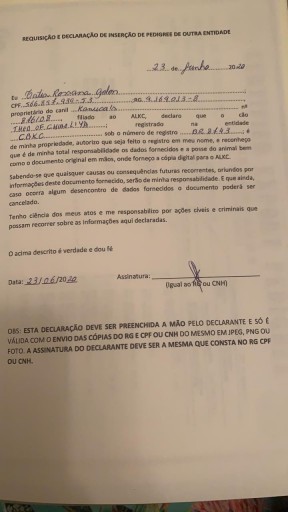 REQUISIÇÃO E DECLARAÇÃO DE INSERÇÃO DE PEDIGREE DE OUTRA ENTIDADE
23 de Junho 2020
Eu Rosana
CPF. RG.
proprietário do canil nº
filiado ao ALKC, declaro que o cão
registrado na entidade
CBKC sob o número de registro é
de minha propriedade, autorizo que seja feito o registro em meu nome, e reconheço
que é de minha total responsabilidade os dados fornecidos e a posse do animal bem
como o documento original em mãos, onde forneço a cópia digital para o ALKC.
Sabendo-se que quaisquer causas ou consequências futuras recorrentes, oriundos por
informações deste documento fornecido, serão de minha responsabilidade. E que ainda,
caso ocorra algum desencontro de dados fornecidos o documento poderá ser
cancelado.
Tenho ciência dos meus atos e me responsabilizo por ações cíveis e criminais que
possam recorrer sobre as informações aqui declaradas.
O acima descrito é verdade e dou fé
Data: 23/06/2020 Assinatura:
(Igual ao RG ou CNH)
OBS: ESTA DECLARAÇÃO DEVE SER PREENCHIDA A MÃO PELO DECLARANTE E SÓ É
VÁLIDA COM O ENVIO DAS CÓPIAS DO RG E CPF OU CNH DO MESMO EM JPEG, PNG OU
FOTO. A ASSINATURA DO DECLARANTE DEVE SER A MESMA QUE CONSTA NO RG CPF
OU CNH.